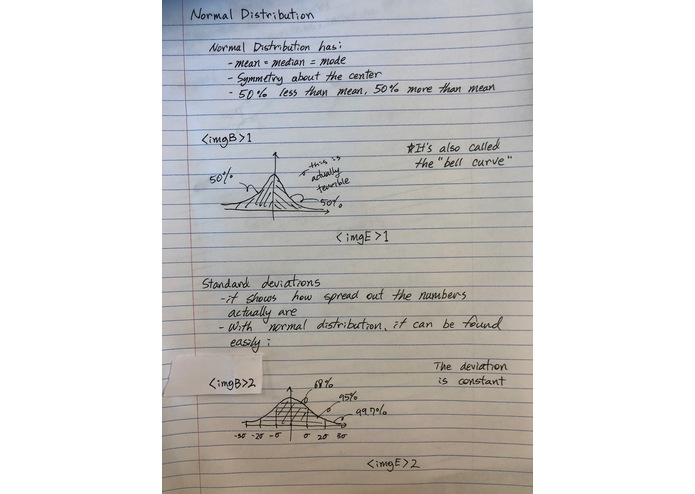 Normal Distribution
Normal Distribution has:
- mean = median = mode
- Symmetry about the center
- 50% less than mean, 50% more than mean
<imgB>1
50%
this is
actually
terrible
50%
*It's also called
the "bell curve"
<imgE>1
Standard deviations
- it shows how spread out the numbers
actually are
- With normal distribution, it can be found
easily:
<imgB>2
The deviation
is constant
68%
95%
99.7%
-3σ -2σ -σ σ 2σ 3σ
<imgE>2